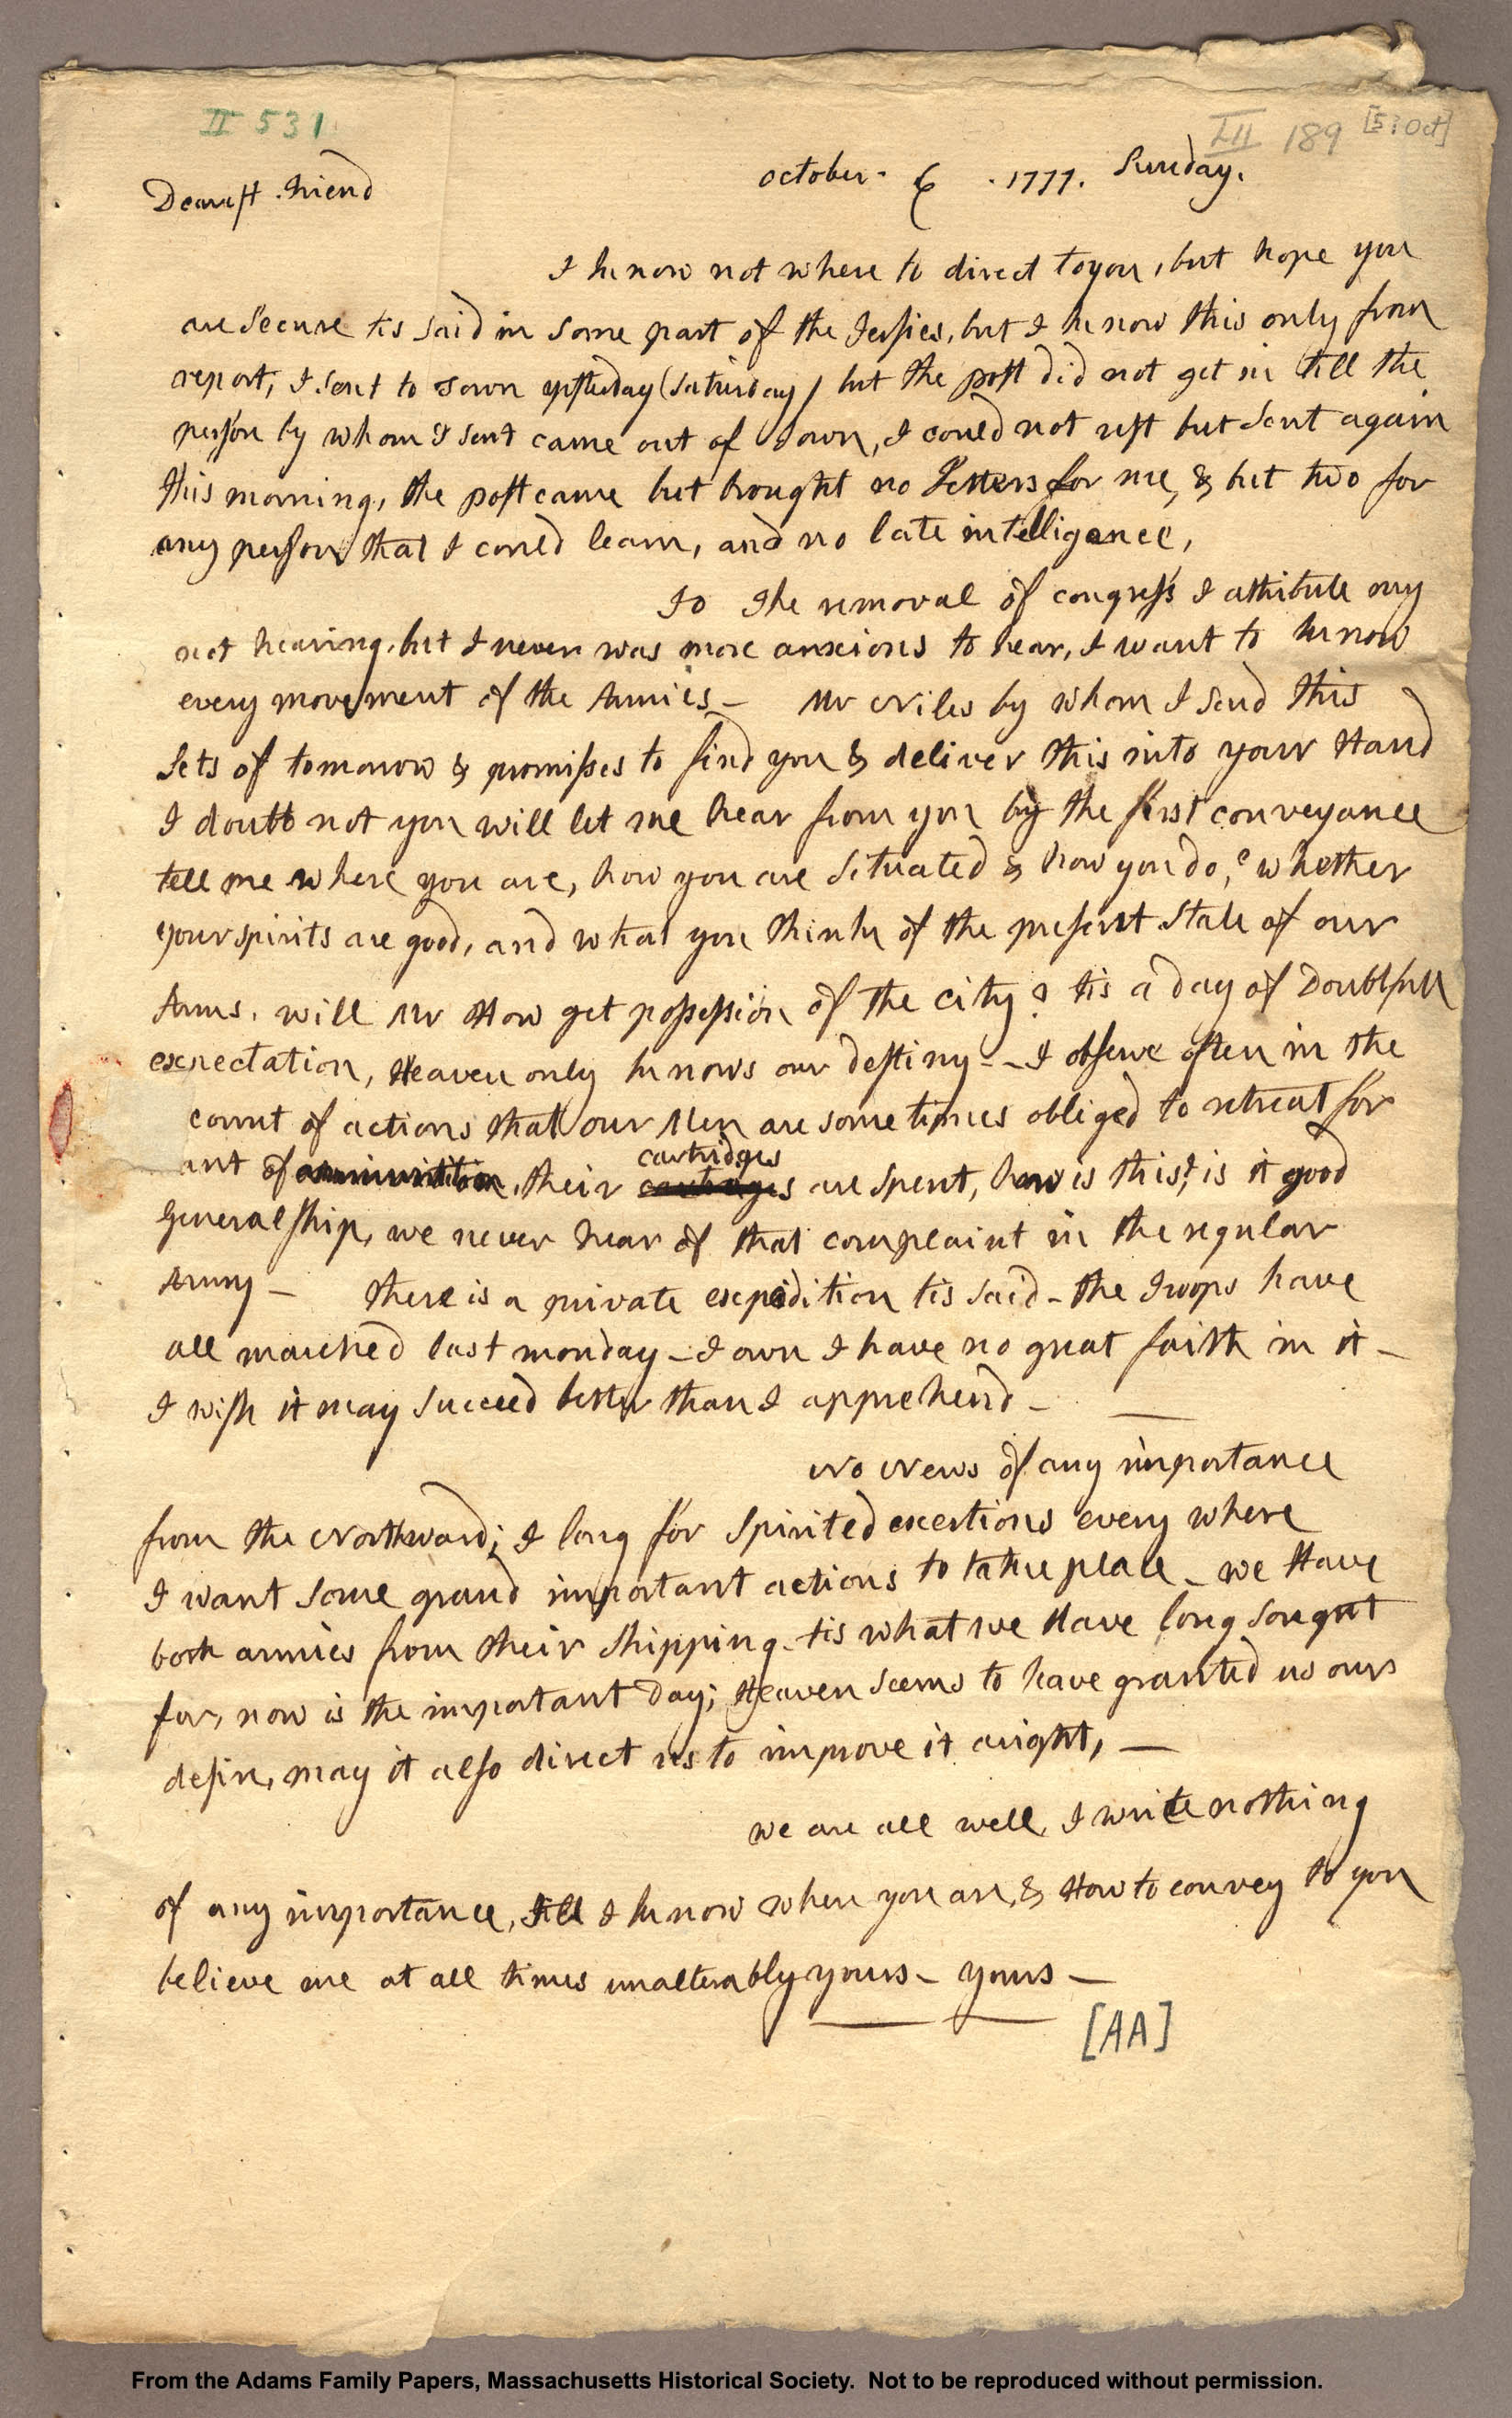 II 531
LII 189 [5? Oct]
october. 6 . 1777. Sunday.
Dearest Friend
I know not where to direct to you, but hope you
are secure tis said in some part of the Jersies, but I know this only from
report, I sent to Town yesterday (saturday) but the post did not get in till the
person by whom I sent came out of Town, I could not rest but sent again
this morning, the post came but brought no Letters for me, & but two for
any person that I could learn, and no late intelligence,
To the removal of congress I attribute my
not hearing, but I never was more anxious to hear, I want to know
every movement of the Armies — Mr Niles by whom I send this
sets of tomorow & promisses to find you & deliver this into your Hand
I doubt not you will let me hear from you by the first conveyance
tell me where you are, how you are situated & how you do? whether
your spirits are good, and what you think of the present state of our
Arms. will Mr How get possession of the city? tis a day of Doubtfull
expectation, Heaven only knows our destiny -- I observe often in the
count of actions that our Men are some times obliged to retreat for
ant of ammunition, their
cartridges
are spent, how is this? is it good
Generalship, we never hear of that complaint in the regular
Army — there is a private expedition tis said - the Troops have
all marched last monday - I own I have no great faith in it —
I wish it may succeed better than I apprehend —
No News of any importance
from the Northward; I long for spirited exertions every where
I want some grand important actions to take place - we Have
both armies from their Shipping - tis what we Have long sought
for, now is the important Day; Heaven seems to have granted us our
desire, may it also direct us to improve it aright, —
we are all well, I write nothing
of any importance, till I know where you are, & How to convey to you
believe me at all times unalterably yours - yours —
[AA]
From the Adams Family Papers, Massachusetts Historical Society. Not to be reproduced without permission.